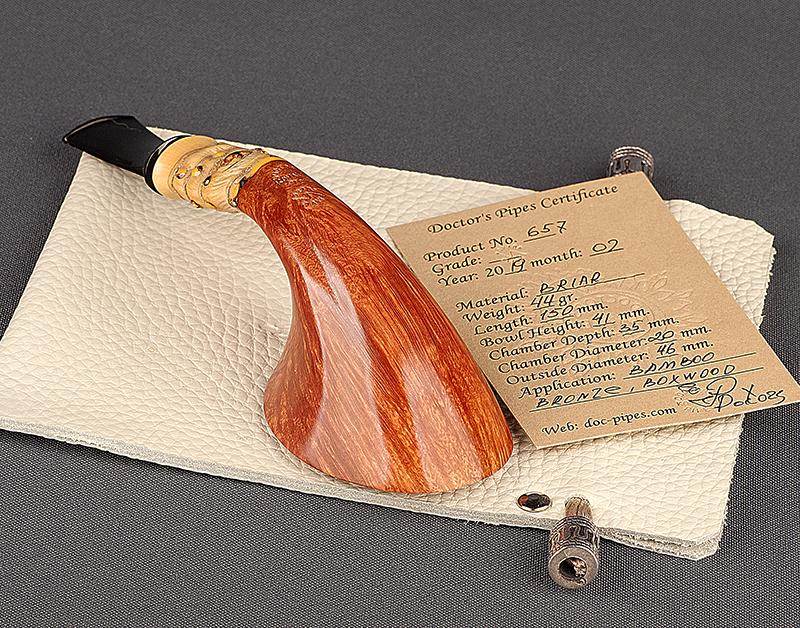 Doctor's Pipes Certificate
Product No. 657
Grade:
Year: 2019 month: 02
Material: BRIAR
Weight: 44 gr.
Length: 150 mm.
Bowl Height: 41 mm.
Chamber Depth: 35 mm.
Chamber Diameter: 20 mm.
Outside Diameter: 46 mm.
Application: BAMBOO
BRONZE, BOXWOOD
Web: doc-pipes.com